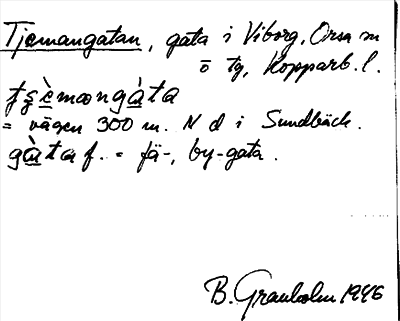 Tjemangatan, gata i Viborg, Orsa sn
ö tg, Kopparb. l.
tʂèmangàta
= vägen 300 m. N d i Sundbäck.
gàta f. = fä-, by-gata.
B. Granholm 1946